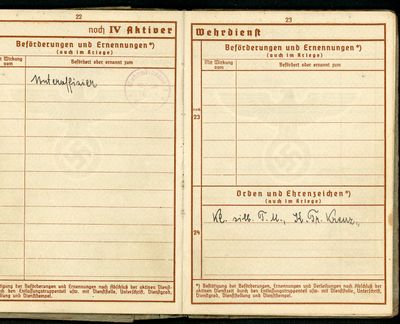 22
noch IV Aktiver
Beförderungen und Ernennungen*)
(auch im Kriege)
Mit Wirkung vom
Befördert oder ernannt zum
Unteroffizier
tigung der Beförderungen und Ernennungen nach Abschluß der aktiven Dienst-
rch den Entlassungstruppenteil usw. mit Dienststelle, Unterschrift, Dienstgrad,
llung und Dienststempel.
23
Wehrdienst
Beförderungen und Ernennungen*)
(auch im Kriege)
Mit Wirkung vom
Befördert oder ernannt zum
noch
23
Orden und Ehrenzeichen*)
(auch im Kriege)
Kl. silb. T. M., K. Tr. Kreuz,
24
*) Bestätigung der Beförderungen, Ernennungen und Verleihungen nach Abschluß der
aktiven Dienstzeit durch den Entlassungstruppenteil usw. mit Dienststelle, Unterschrift,
Dienstgrad, Dienststellung und Dienststempel.